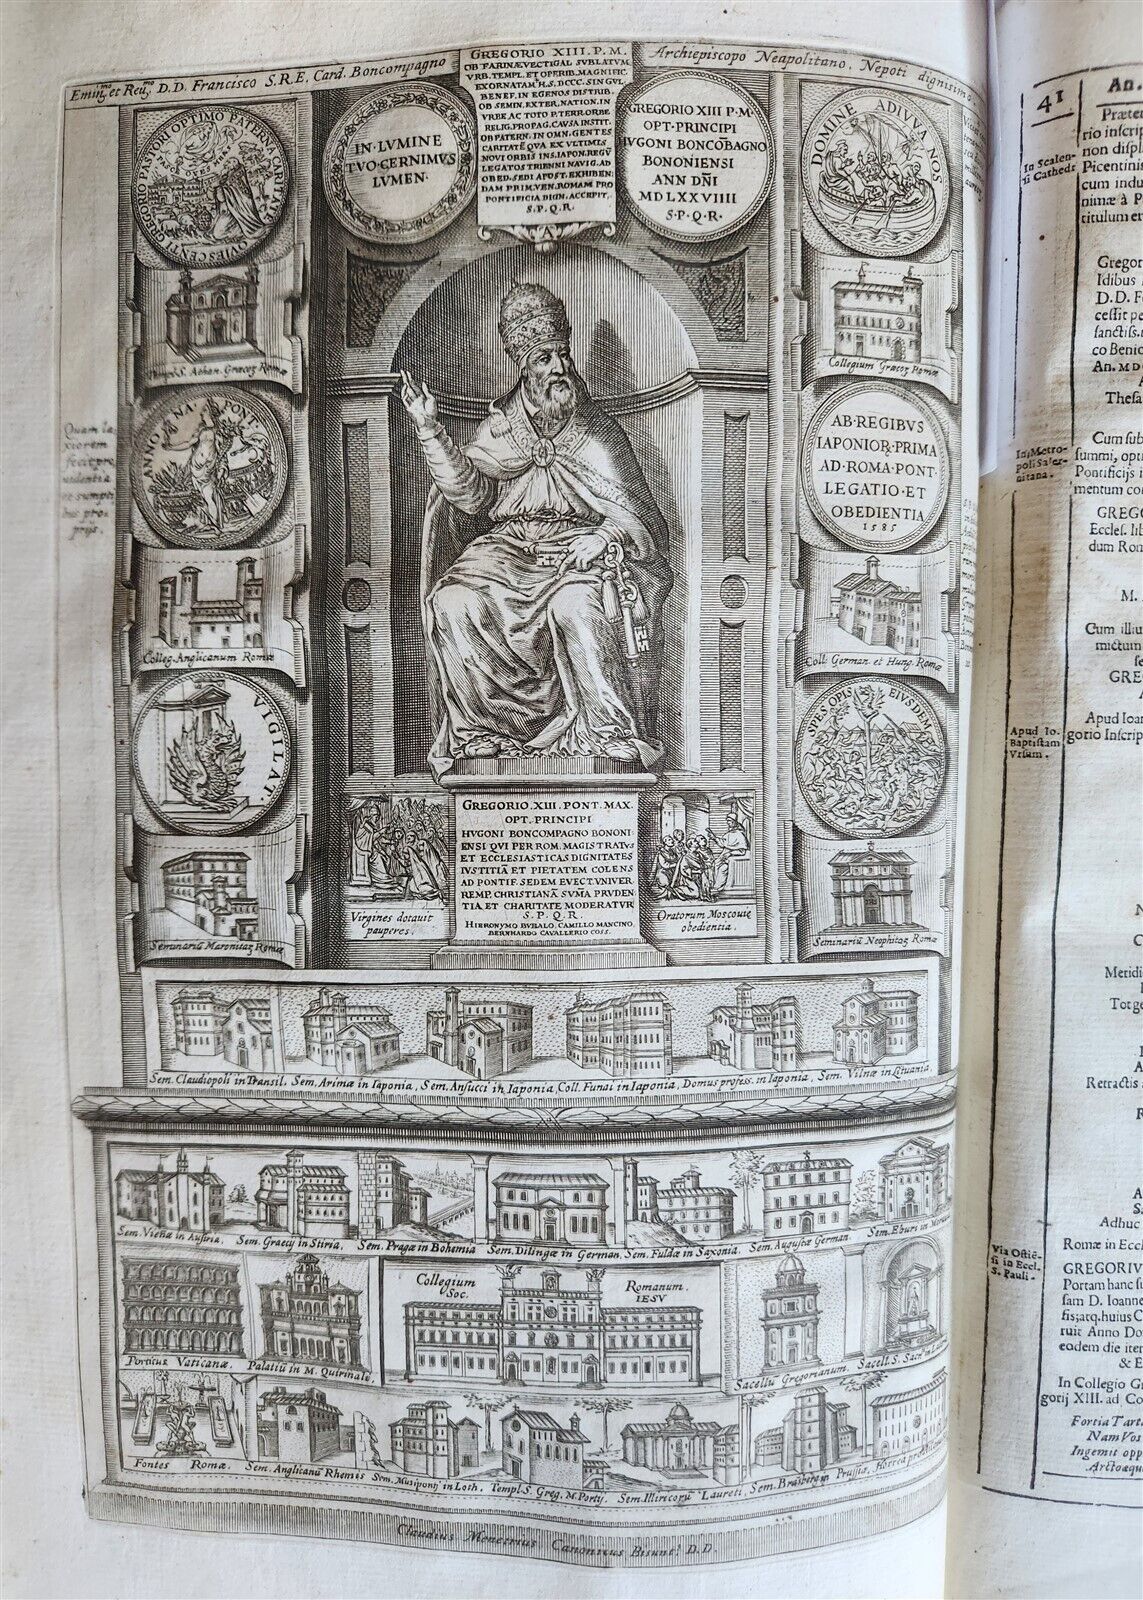 Emin.mo et Reu.mo D.D. Francisco S.R.E. Card. Boncompagno
Archiepiscopo Neapolitano, Nepoti dignissimo
GREGORIO XIII. P. M.
OB FARINÆ VECTIGAL SVBLATVM
VRB. TEMPL. ET OPERIB. MAGNIFIC.
EXORNATAM H.S. DCCC. SINGVL.
BENEF. IN EGENOS DISTRIB.
OB SEMIN. EXTER. NATION. IN
VRBE AC TOTO P. TERR. ORBE
RELIG. PROPAG. CAVSA INSTIT.
OB PATERN. IN OMN. GENTES
CARITATĒ QVA EX VLTIMIS
NOVI ORBIS INS. IAPON. REGV̄
LEGATOS TRIENNI NAVIG. AD
OBED. SEDI APOST. EXHIBEN:
DAM PRIM. VEN. ROMAM PRO
PONTIFICIA DIGN. ACCEPIT.
S.P.Q.R.
GREGORIO PASTORI OPTIMO PATERNA CARITATE
PASCE OVES
IN LVMINE
TVO CERNIMVS
LVMEN.
GREGORIO XIII P.M.
OPT. PRINCIPI
HVGONI BONCÕBAGNO
BONONIENSI
ANN DÑI
MDLXXVIIII
S.P.Q.R.
DOMINE ADIVVA NOS
Templ. S. Athan. Græcoꝝ Romæ
Collegium Græcoꝝ Romæ
Quam la
xiorem
fecit pro
uidentia
et sumpti
bus pro-
prijs.
ANNO NA PONT
AB REGIBVS
IAPONIOꝜ PRIMA
AD ROMA PONT
LEGATIO ET
OBEDIENTIA
1585
Colleg. Anglicanum Romæ
Coll. German. et Hung. Romæ
VIGILAT.
SPES OPIS EIVSDEM
Seminariū Maronitaꝝ Romæ
Seminariū Neophitaꝝ Romæ
GREGORIO. XIII. PONT. MAX.
OPT. PRINCIPI
HVGONI BONCOMPAGNO BONONI=
ENSI QVI PER ROM. MAGISTRATVS
ET ECCLESIASTICAS DIGNITATES
IVSTITIĀ ET PIETATEM COLENS
AD PONTIF. SEDEM EVECT. VNIVER.
REMP. CHRISTIANĀ SVM̄A PRVDEN
TIA ET CHARITATE MODERATVR
S. P. Q. R.
HIERONYMO BVBALO, CAMILLO MANCINO,
BERNHARDO CAVALLERIO COSS.
Virgines dotauit
pauperes.
Oratorum Moscouiæ
obedientia.
Sem. Claudiopoli in Transil. Sem. Arimæ in Iaponia, Sem. Ansucci in Iaponia, Coll. Funai in Iaponia, Domus profess. in Iaponia, Sem. Vilnæ in Lituania.
Sem. Vienæ in Austria, Sem. Græcij in Stiria, Sem. Pragæ in Bohemia Sem. Dilingæ in German. Sem. Fuldæ in Saxonia. Sem. Augustæ German. Sem. Eburi in
Collegium Romanum.
Soc. IESV
Porticus Vaticanæ. Palatiū in M. Quirinale. Sacellū Gregorianum. Sacell. S. Sacr.
Fontes Romæ. Sem. Anglicanū Rhemis Sem. Mussiponij in Loth. Templ. S. Greg. M. Portij. Sem. Illiricorū Laureti, Sem. Brasberg in Prussia, Horrea
Claudius Monetrius Canonicus Bisunt. D.D.
41
An.
Præter
rio inscri
In Scalen-
si Cathedr
non displ
Picentini
cum indu
nimæ à P
titulum er
Gregor
Idibus
D.D. F
cessit pe
sanctiss.
co Benic
An. MD
Thesa
In Metro-
poli Saler-
nitana.
Cum sub
summi, opti
Pontificijs i
mentum co
GREGO
Eccles. lib
dum Rom
M.
Cum illiu
mictum
GREG
Apud Io-
Baptistam
Vrsum.
Apud Ioan
gorio Inscrip
Meridi
Tot ge
Retractis
Adhuc
Via Ostiē-
si in Eccl.
S. Pauli.
Romæ in Eccl
GREGORIV
Portam hanc su
sam D. Ioanne
fis; atq. huius C
ruit Anno Do
eodem die iter
& E
In Collegio G
gorij XIII. ad Co
Fortia Tart
Nam Vos
Ingemit opp
Arctoaqu